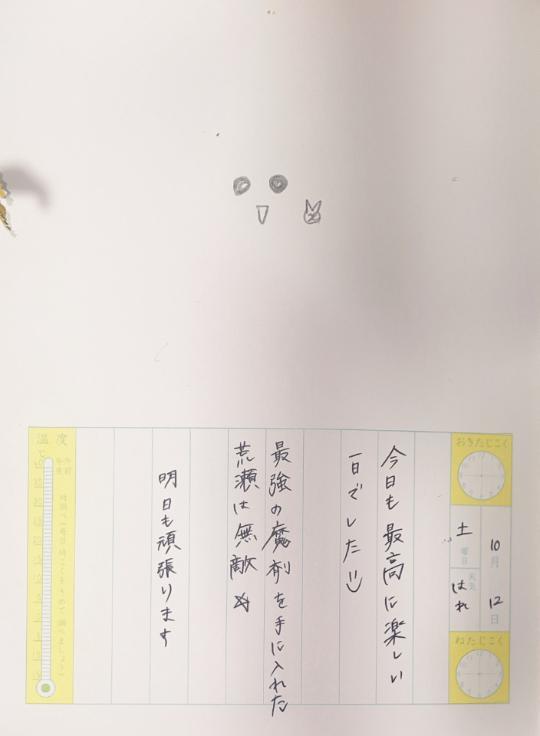 おきたじこく
10月12日
土曜日
天気 はれ
ねたじこく
今日も最高に楽しい
一日でした
最強の魔剤を手に入れた
荒瀬は無敵
明日も頑張ります
温度